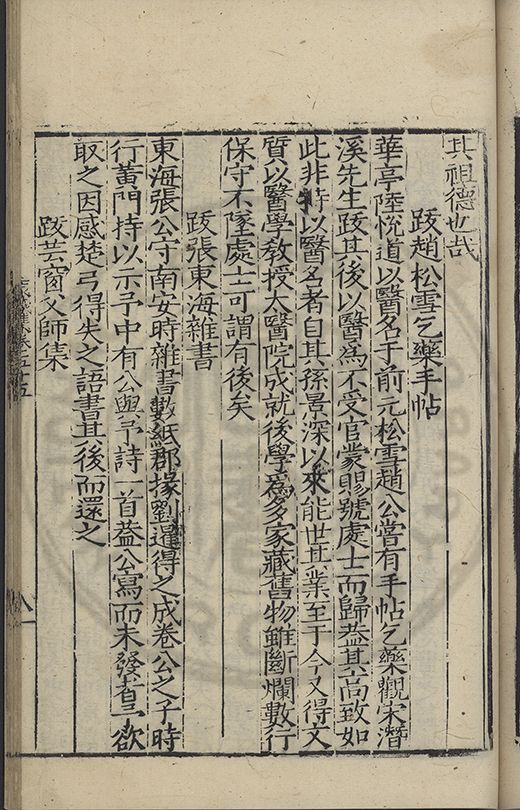 其祖德也哉
跋趙松雪乞藥手帖
華亭陸悅道以醫名于前元松雪趙公嘗有手帖乞藥觀宋潛
溪先生跋其後以醫爲不受官蒙賜號處士而歸葢其高致如
此非特以醫名者自其孫景深以來能世其業至于今又得文
質以醫學敎授太醫院成就後學爲多家藏舊物雖斷爛數行
保守不墜處士可謂有後矣
跋張東海雜書
東海張公守南安時雜書數紙郡掾劉暹得之成卷公之子時
行黃門持以示予中有公與予詩一首葢公寫而未發者予欲
取之因感楚弓得失之語書其後而還之
跋芸窗父師集